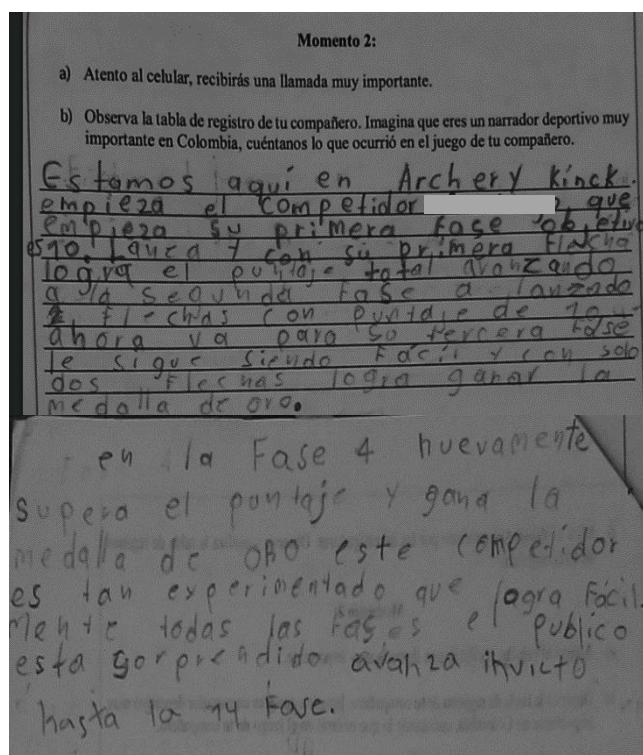 Momento 2:
a) Atento al celular, recibirás una llamada muy importante.
b) Observa la tabla de registro de tu compañero. Imagina que eres un narrador deportivo muy
importante en Colombia, cuéntanos lo que ocurrió en el juego de tu compañero.
Estamos aquí en Archery Kinck.
empieza el competidor que
empieza su primera fase objetivo
es 10. Lanza y con su primera Flacha
logra el puntaje total avanzando
a la segunda fase a lanzado
2 flechas con puntaje de
ahora va para su tercera fase
le sigue siendo Fácil y con solo
dos flechas logra ganar la
medalla de oro.
en la Fase 4 nuevamente
supera el puntaje y gana la
medalla de ORO este competidor
es tan experimentado que logra Fácil.
Mente todas las Fases el publico
esta sorprendido avanza invicto
hasta la 14 Fase.